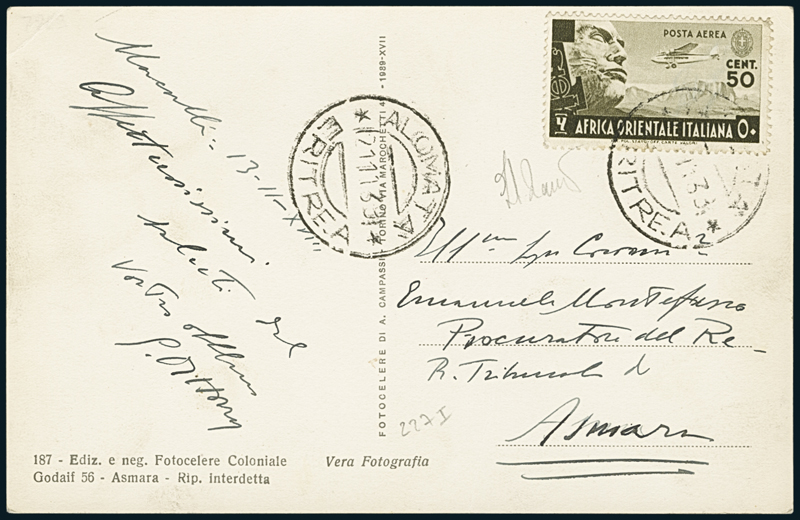 Macallè - 13-11-XVIII
Affettuosissimi
saluti dal
Vostro
187 - Ediz. e neg. Fotocelere Coloniale
Godaif 56 - Asmara - Rip. interdetta
Vera Fotografia
FOTOCELERE DI A. CAMPASSI - TORINO VIA MAROCHETTI 41 - 1939-XVII
ALOMATA
ERITREA
POSTA AEREA
CENT.
50
AFRICA ORIENTALE ITALIANA
ERITREA
Emanuele Montefusco
Procuratore del Re -
R. Tribunale di
Asmara
227 I